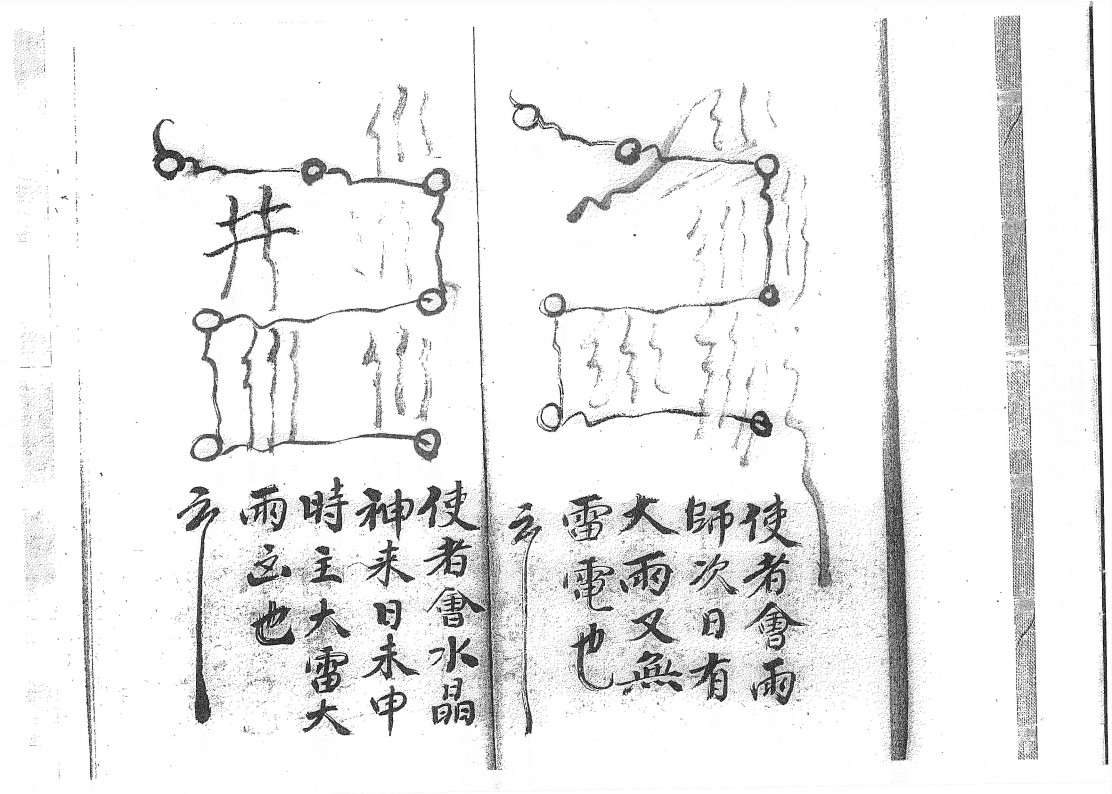 使者會雨
師次日有
大雨又無
雷電也
云
井
使者會水晶
神来日未申
時主大雷大
雨也
云